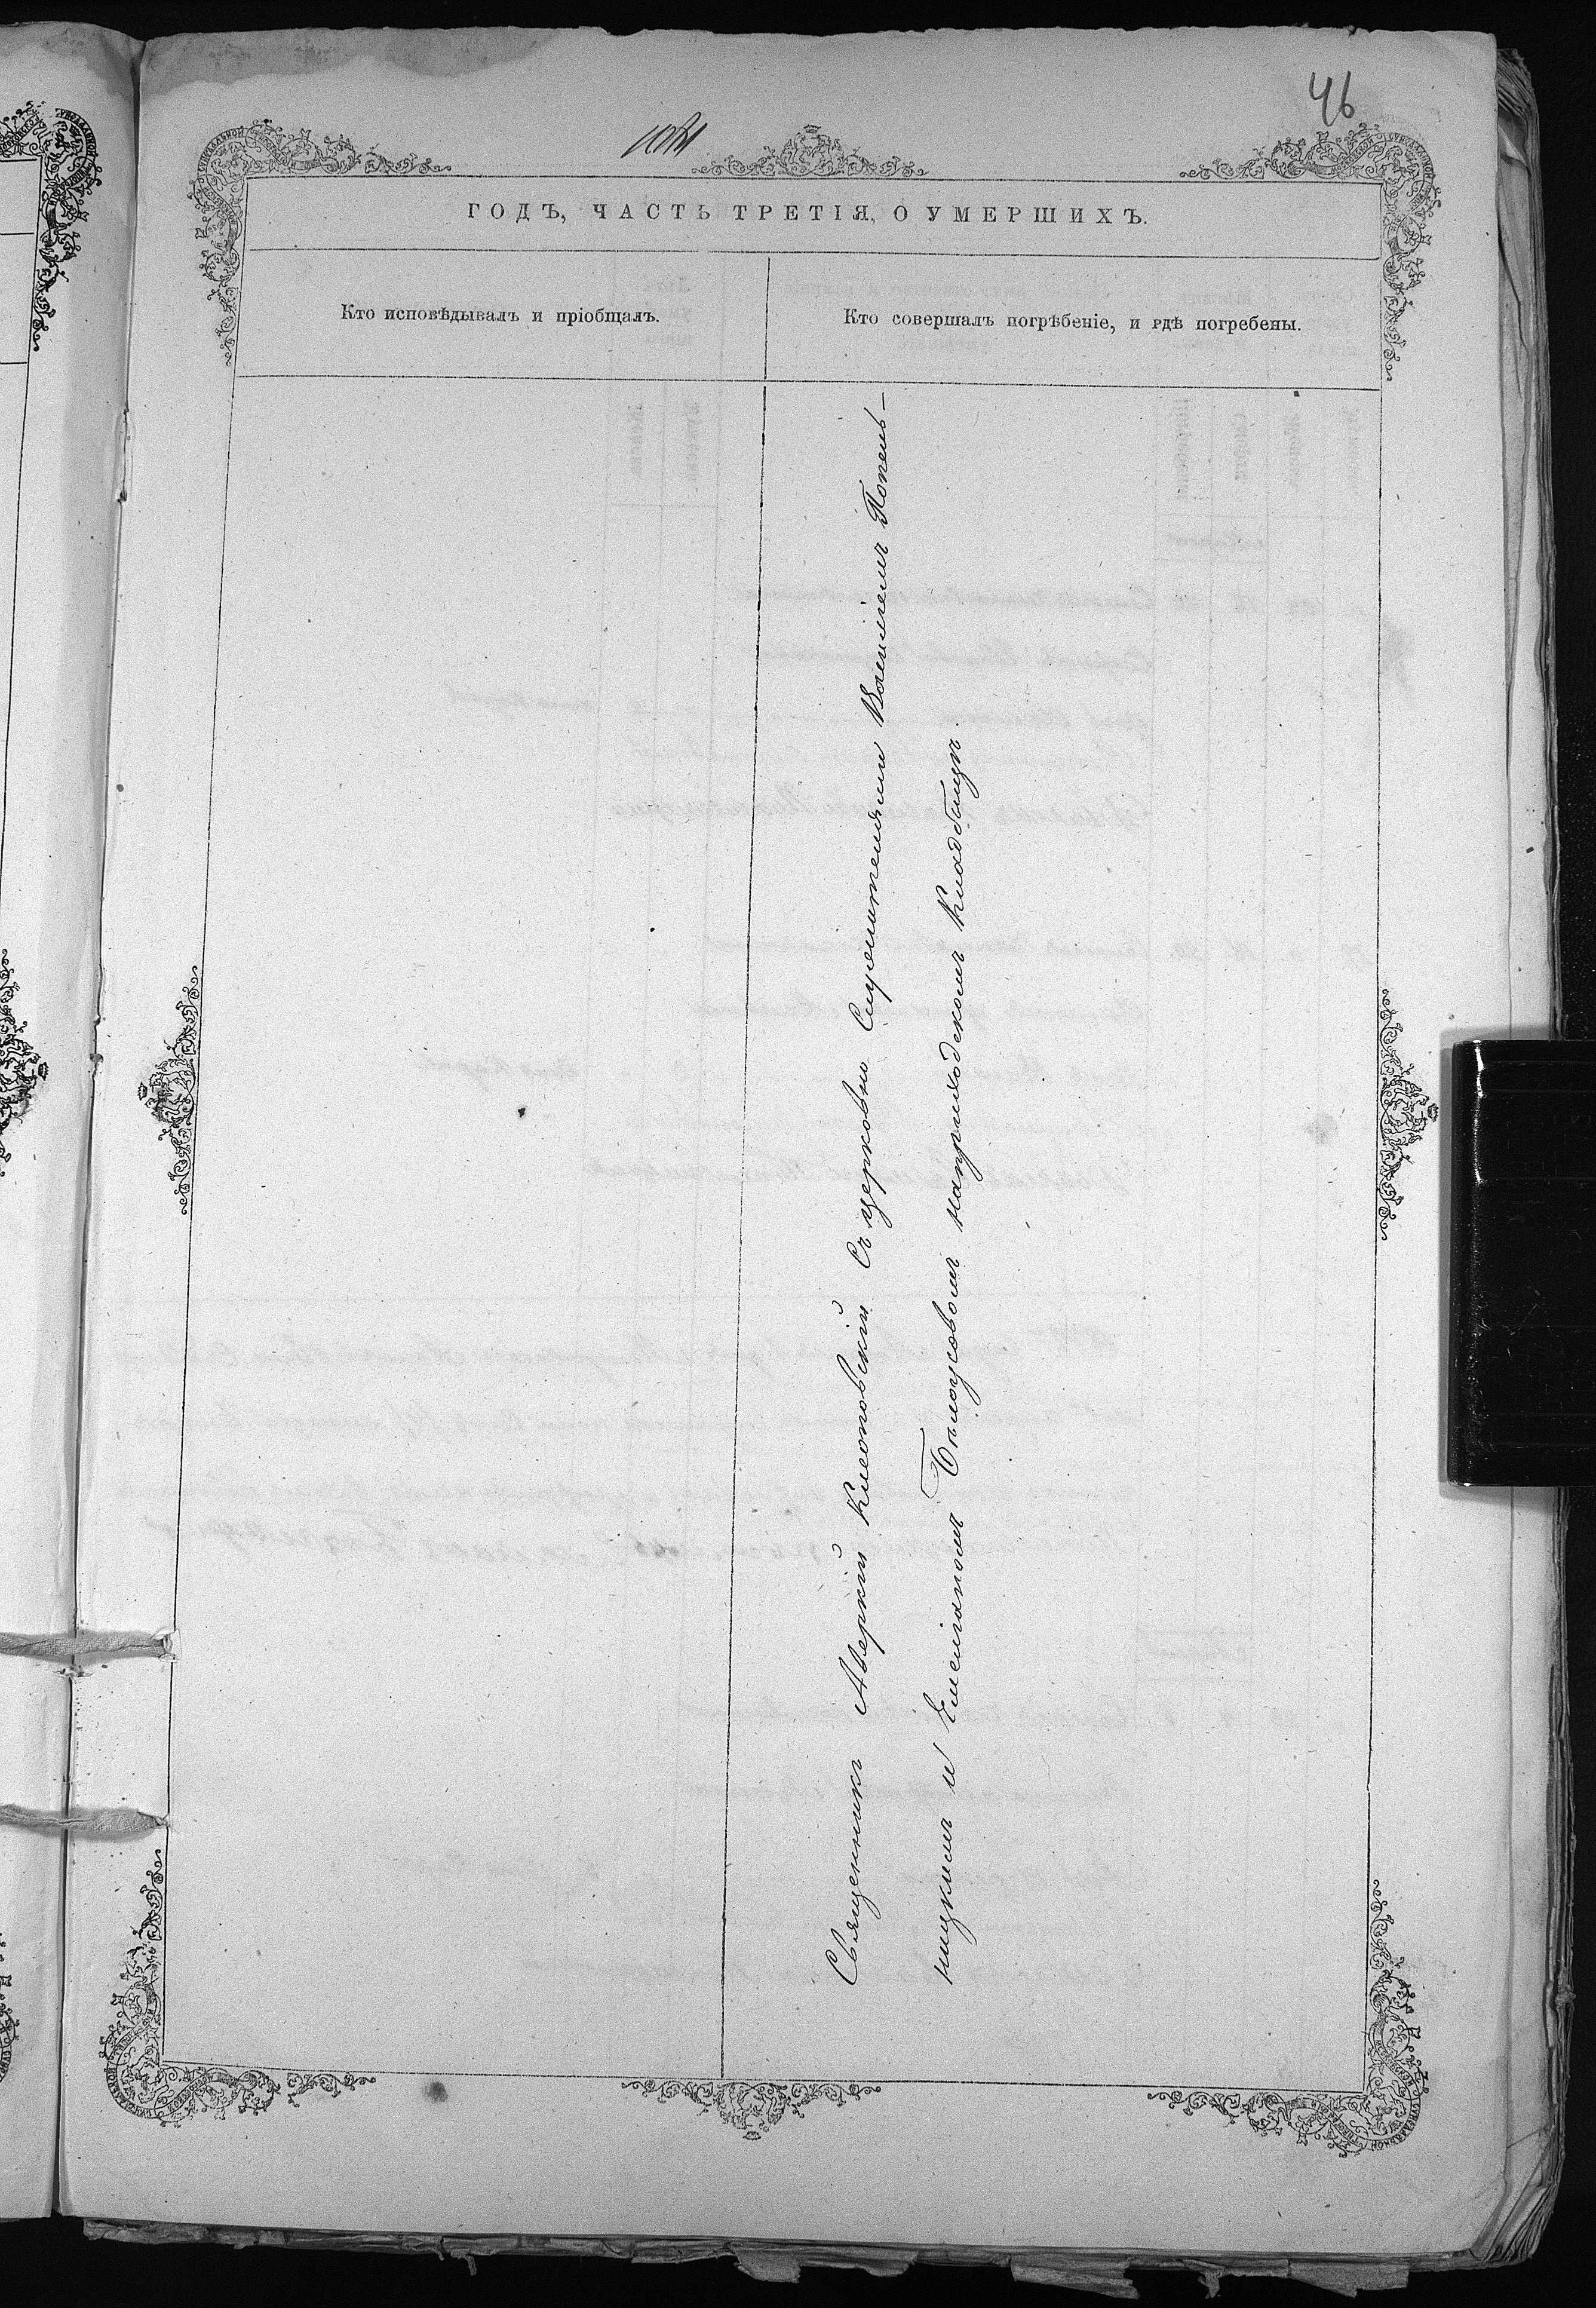 46
ГОДЪ, ЧАСТЬ ТРЕТІЯ, О УМЕРШИХЪ.
Кто исповѣдывалъ и пріобщалъ.
Кто совершалъ погрѣбеніе, и гдѣ погребены.
Священникъ Аверкій Клеоповскій Съ церковно Служителями Василіемъ Попель-
ницкимъ и Емеліаномъ Бѣлоусовомъ наприходскомъ Кладбищѣ.